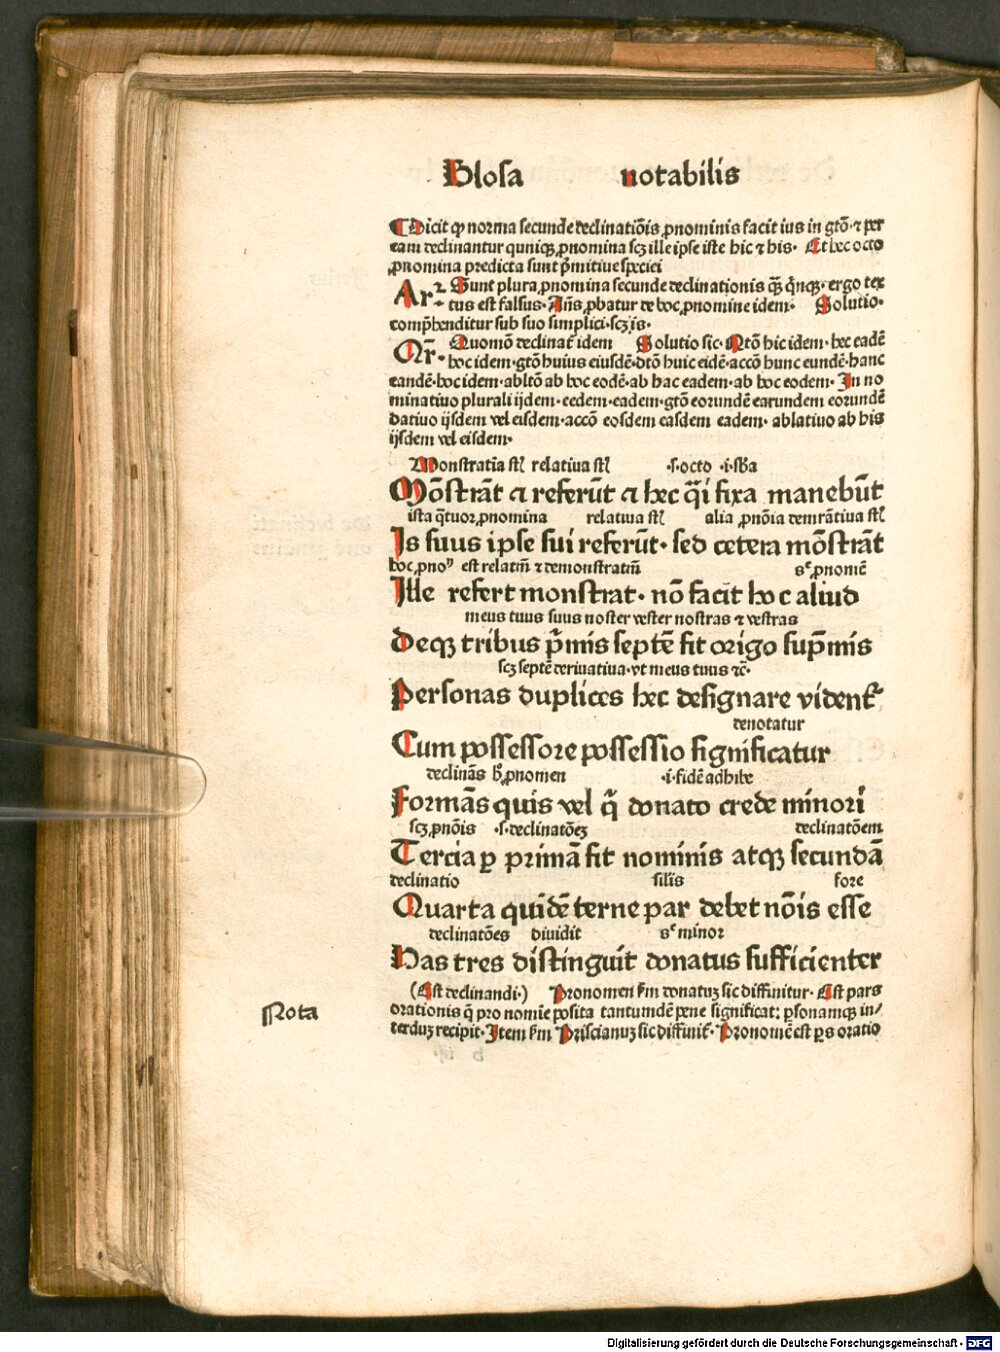 Glosa notabilis
Dicit qꝫ norma secunde declinatiōis ꝓnominis facit ius in gtō· ⁊ per
eam declinantur quinqꝫ ꝓnomina scꝫ ille ipse iste hic ⁊ his· Et hec octo
ꝓnomina predicta sunt p̄mitiue speciei
Ar̄· Sunt plura ꝓnomina secunde declinationis qꝫ q̄nqꝫ· ergo tex
tus est falsus· Añs ꝓbatur de hoc ꝓnomine idem· Solutio·
comp̄henditur sub suo simplici·scꝫ is·
Qr̄· Quomō declinat̄ idem Solutio sic· Ntō hic idem· hec eadē
hoc idem·gtō huius eiusdē·dtō huic eidē·accō hunc eundē·hanc
eandē·hoc idem·abltō ab hoc eodē·ab hac eadem·ab hoc eodem· In no
minatiuo plurali ijdem·eedem·eadem·gtō eorundē earundem eorundē
datiuo ijsdem vel eisdem·accō eosdem easdem eadem· ablatiuo ab his
ijsdem vel eisdem·
Monstratīa sƭ relatiua sƭ ·s·octo ·i·sb̄a
Mōstrāt ⁊ referūt ⁊ hec q̄si fixa manebūt
ista q̄tuor ꝓnomina relatiua sƭ alia ꝓnōia demrātiua sƭ
Is suus ipse sui referūt· sed cetera mōstrāt
hoc ꝓnoᵐ est relatiū ⁊ demonstratiū sᶜ ꝓnomē
Ille refert monstrat· nō facit hoc aliud
meus tuus suus noster vester nostras ⁊ vestras
Deqꝫ tribus p̄mis septē fit origo sup̄mis
scꝫ septē deriuatiua·vt meus tuus ⁊c̄·
Personas duplices hec designare vident᷑
denotatur
Cum possessore possessio significatur
declinās h̄ ꝓnomen ·i·fidē adhibe
Formās quis vel q̄ donato crede minori
scꝫ ꝓnōis ·s·declinatōeꝫ declinatōem
Tercia ꝑ primā fit nominis atqꝫ secundā
declinatio silis fore
Quarta quidē terne par debet nōis esse
declinatōes diuidit sᶜ minor
Has tres distinguit donatus sufficienter
(Est declinandi·) Pronomen s̄m donatuꝫ sic diffinitur· Est pars
orationis q̄ pro nomie posita tantumdē pene significat: ꝑsonamqꝫ in/
terduꝫ recipit· Item s̄m Priscianuꝫ sic diffinit᷑· Pronomē est ꝑs oratio
Nota